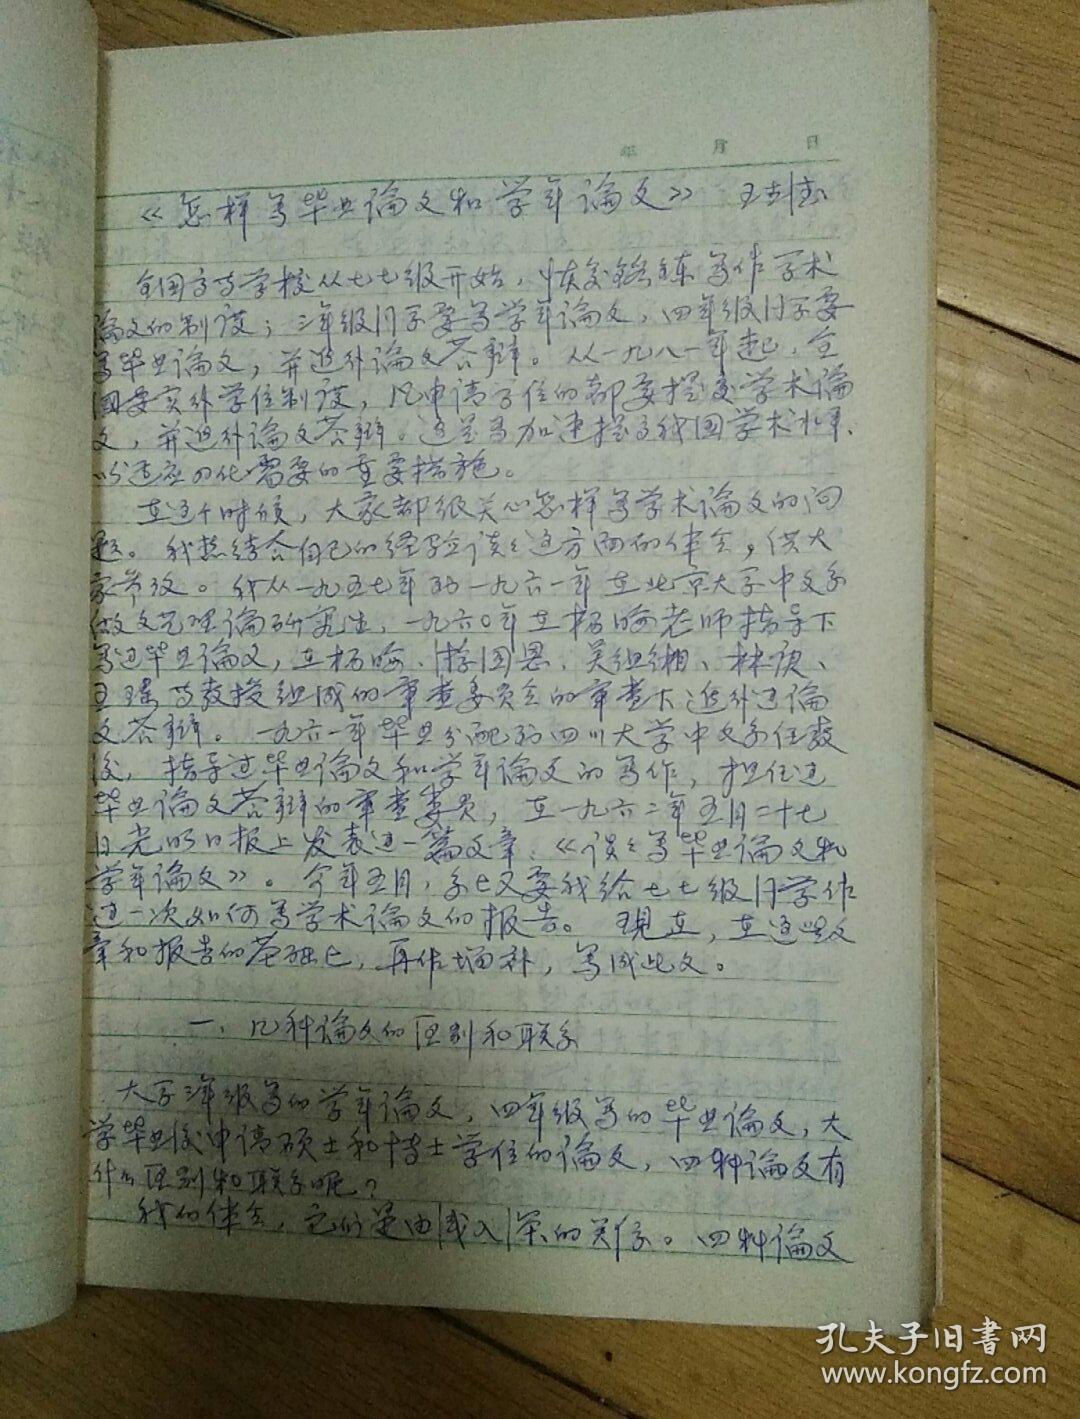 年 月 日
《怎样写毕业论文和学年论文》 王
全国高等学校从七七级开始，恢复锻练写作学术
论文的制度；三年级同学要写学年论文，四年级同学要
写毕业论文，并进行论文答辩。从一九八一年起，全
国要实行学位制度，凡申请学位的都要提交学术论
文，并进行论文答辩。这是为加速提高我国学术水平、
以适应四化需要的重要措施。
在这个时候，大家都很关心怎样写学术论文的问
题。我想结合自己的经验谈谈这方面的体会，供大
家参考。我从一九五七年到一九六一年在北京大学中文系
做文艺理论研究生，一九六〇年在杨晦老师指导下
写过毕业论文，在杨晦、游国恩、吴组缃、林庚、
王瑶等教授组成的审查委员会的审查下进行过论
文答辩。一九六一年毕业分配到四川大学中文系任教
后，指导过毕业论文和学年论文的写作，担任过
毕业论文答辩的审查委员，在一九六二年五月二十七
日光明日报上发表过一篇文章《谈谈写毕业论文和
学年论文》。今年五月，系上又要我给七七级同学作
过一次如何写学术论文的报告。现在，在这些文
章和报告的基础上，再作增补，写成此文。
一、几种论文的区别和联系
大学三年级写的学年论文，四年级写的毕业论文，大
学毕业后申请硕士和博士学位的论文，四种论文有
什么区别和联系呢？
我的体会，它们是由浅入深的关系。四种论文
孔夫子旧书网
www.kongfz.com